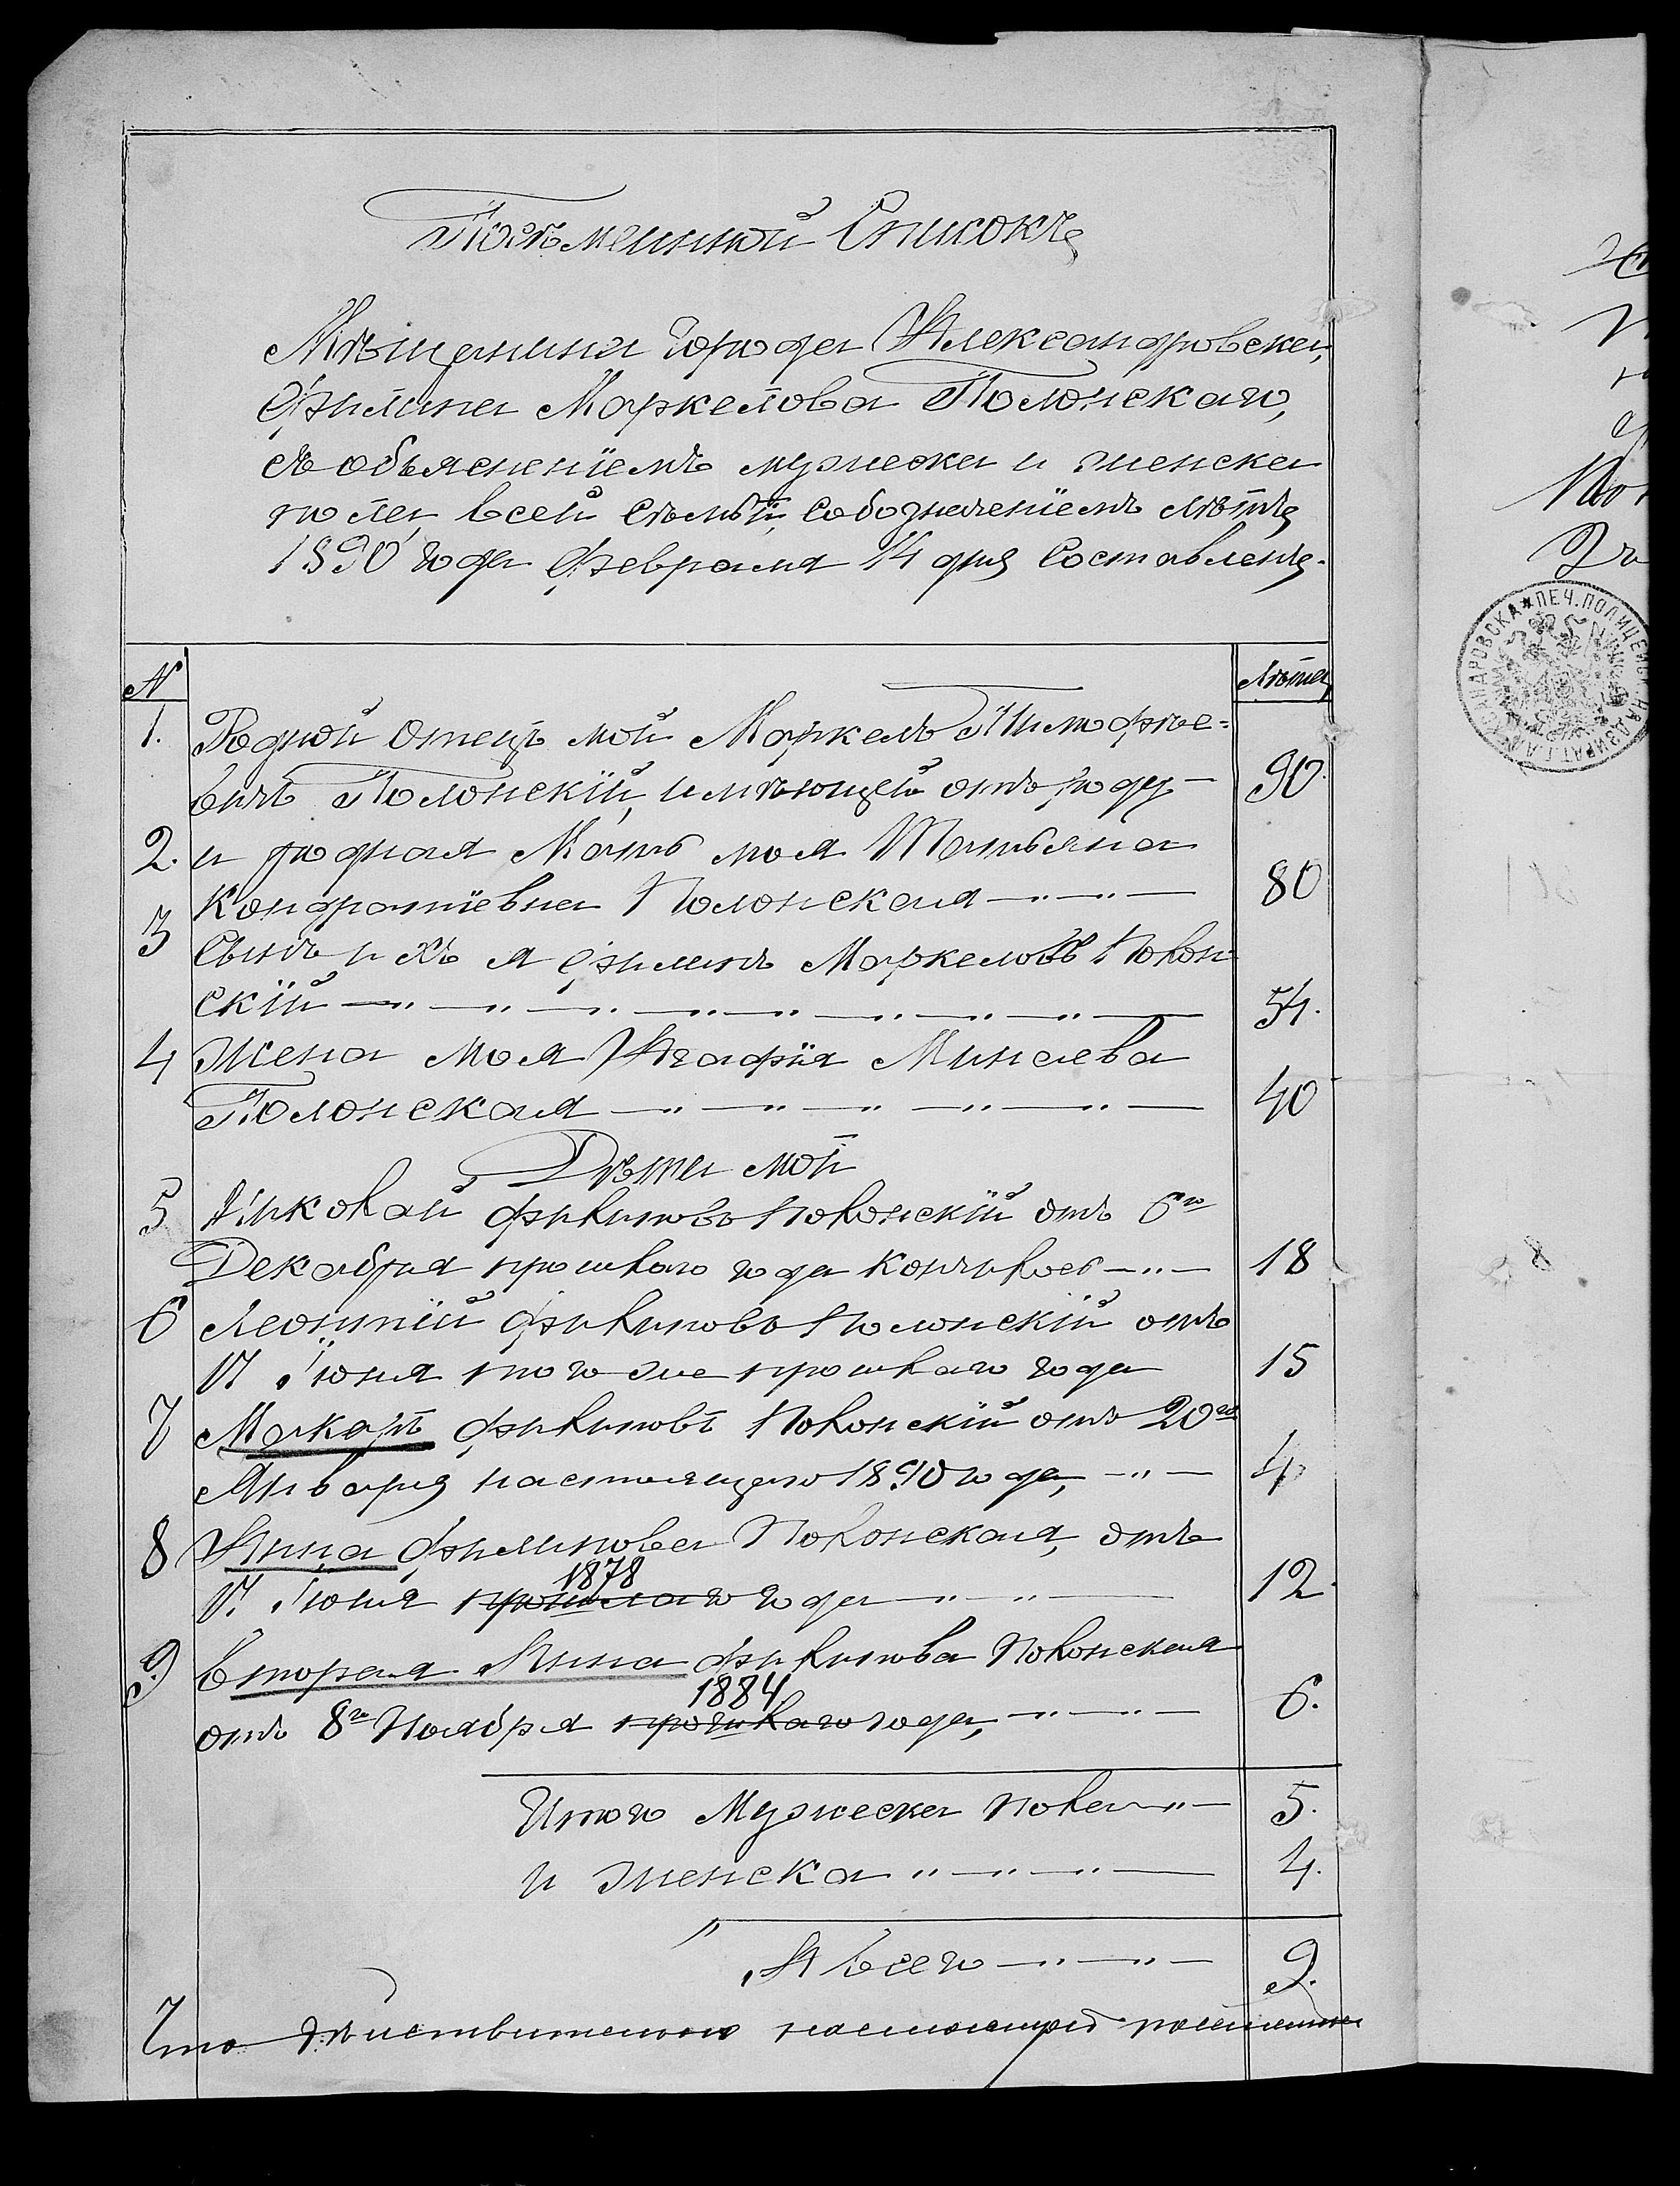 Посѣменный Списокъ
Мѣщанина Города Александровска,
Филипа Маркелова Полонскаго,
съ объясненіемъ мужеска и женска
пола, всей семьи, собозначеніемъ лѣтъ,
1890 года Февраля 14 дня Составленъ.
N Лѣта
1. Родной Отецъ мой Маркелъ Тимофѣе=
вичъ Полонскій, имѣющей отъ роду — 90.
2. и родная Мать моя Татьяна
Кондратіевна Полонская —"—"— 80
3 Сынъ ихъ я Филипъ Маркеловъ Полон
скій —"—"—"—"—"—"—"—"— 54.
4 Жена моя Агафія Минаева
Полонская —"—"—"—"—"— 40
Дѣти мои
5 Николай Филиповъ Полонскій отъ 6го
Декабря прошлаго года кончилось —"— 18
6 Леонтій Филиповъ Полонскій отъ
17 Іюня того же прошлаго года 15
7 Макаръ Филиповъ Полонскій отъ 20го
Января настоящаго 1890 года, —"— 4
8 Анна Филипова Полонская, отъ
1878
17. Іюня прошлаго года —"—"— 12.
9 Вторая Анна Филипова Полонская
1884
отъ 8го Ноября прошлаго года, —"—"— 6.
Итого Мужеска пола —"— 5.
и женска "—"—"— 4.
"
А всего —"—"— 9.
Что дѣйствительно настоящей посѣменной
АЛЕКСАНДРОВСКА * ПЕЧ. ПОЛИЦЕЙСК. НАДЗИРАТ. Г.